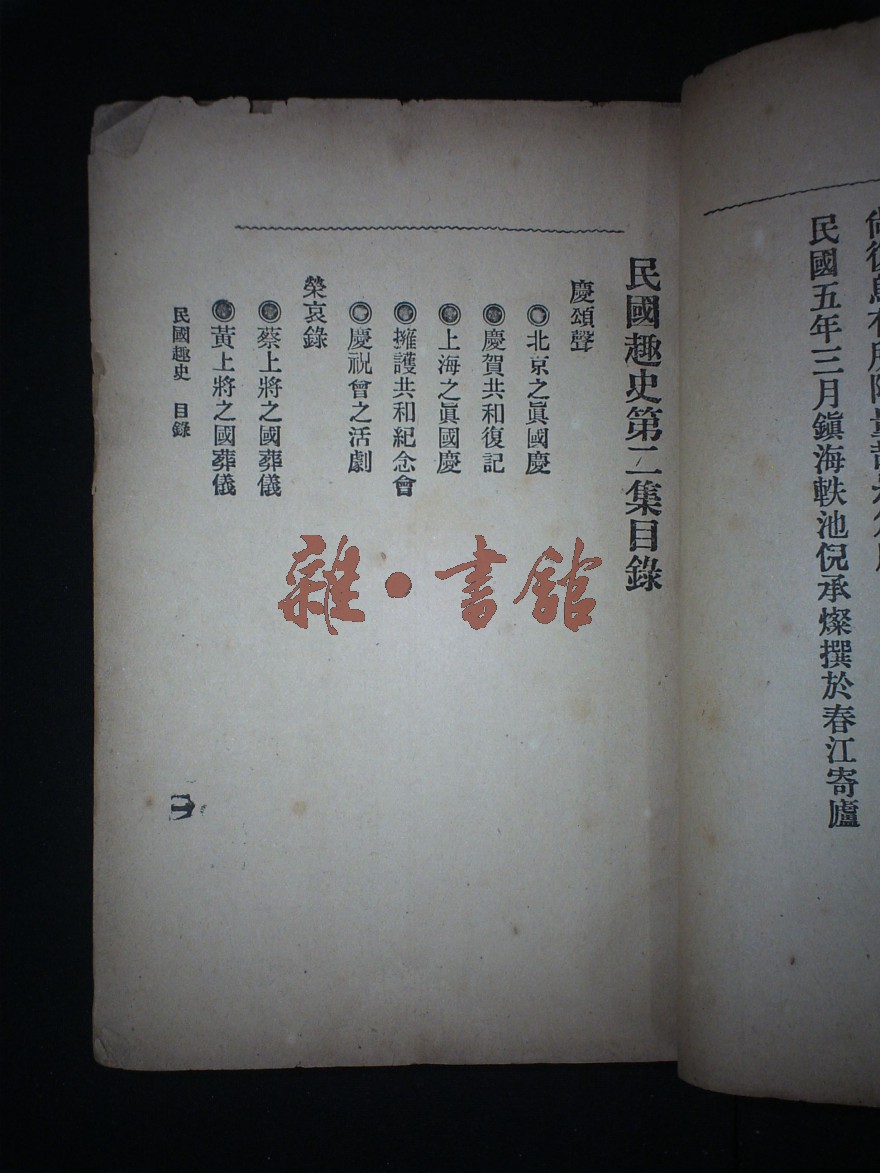 民國五年三月鎮海軼池倪承燦撰於春江寄廬
民國趣史第二集目錄
慶頌聲
◎北京之眞國慶
◎慶賀共和復記
◎上海之眞國慶
◎擁護共和紀念會
◎慶祝會之活劇
榮哀錄
◎蔡上將之國葬儀
◎黃上將之國葬儀
民國趣史 目錄
一
雜·書館